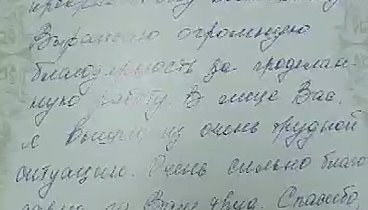 Выражаю огромную
благодарность за проделан-
ную работу. В лице Вас,
я вышла из очень трудной
ситуации. Очень сильно благо
за Ваш Спасибо,